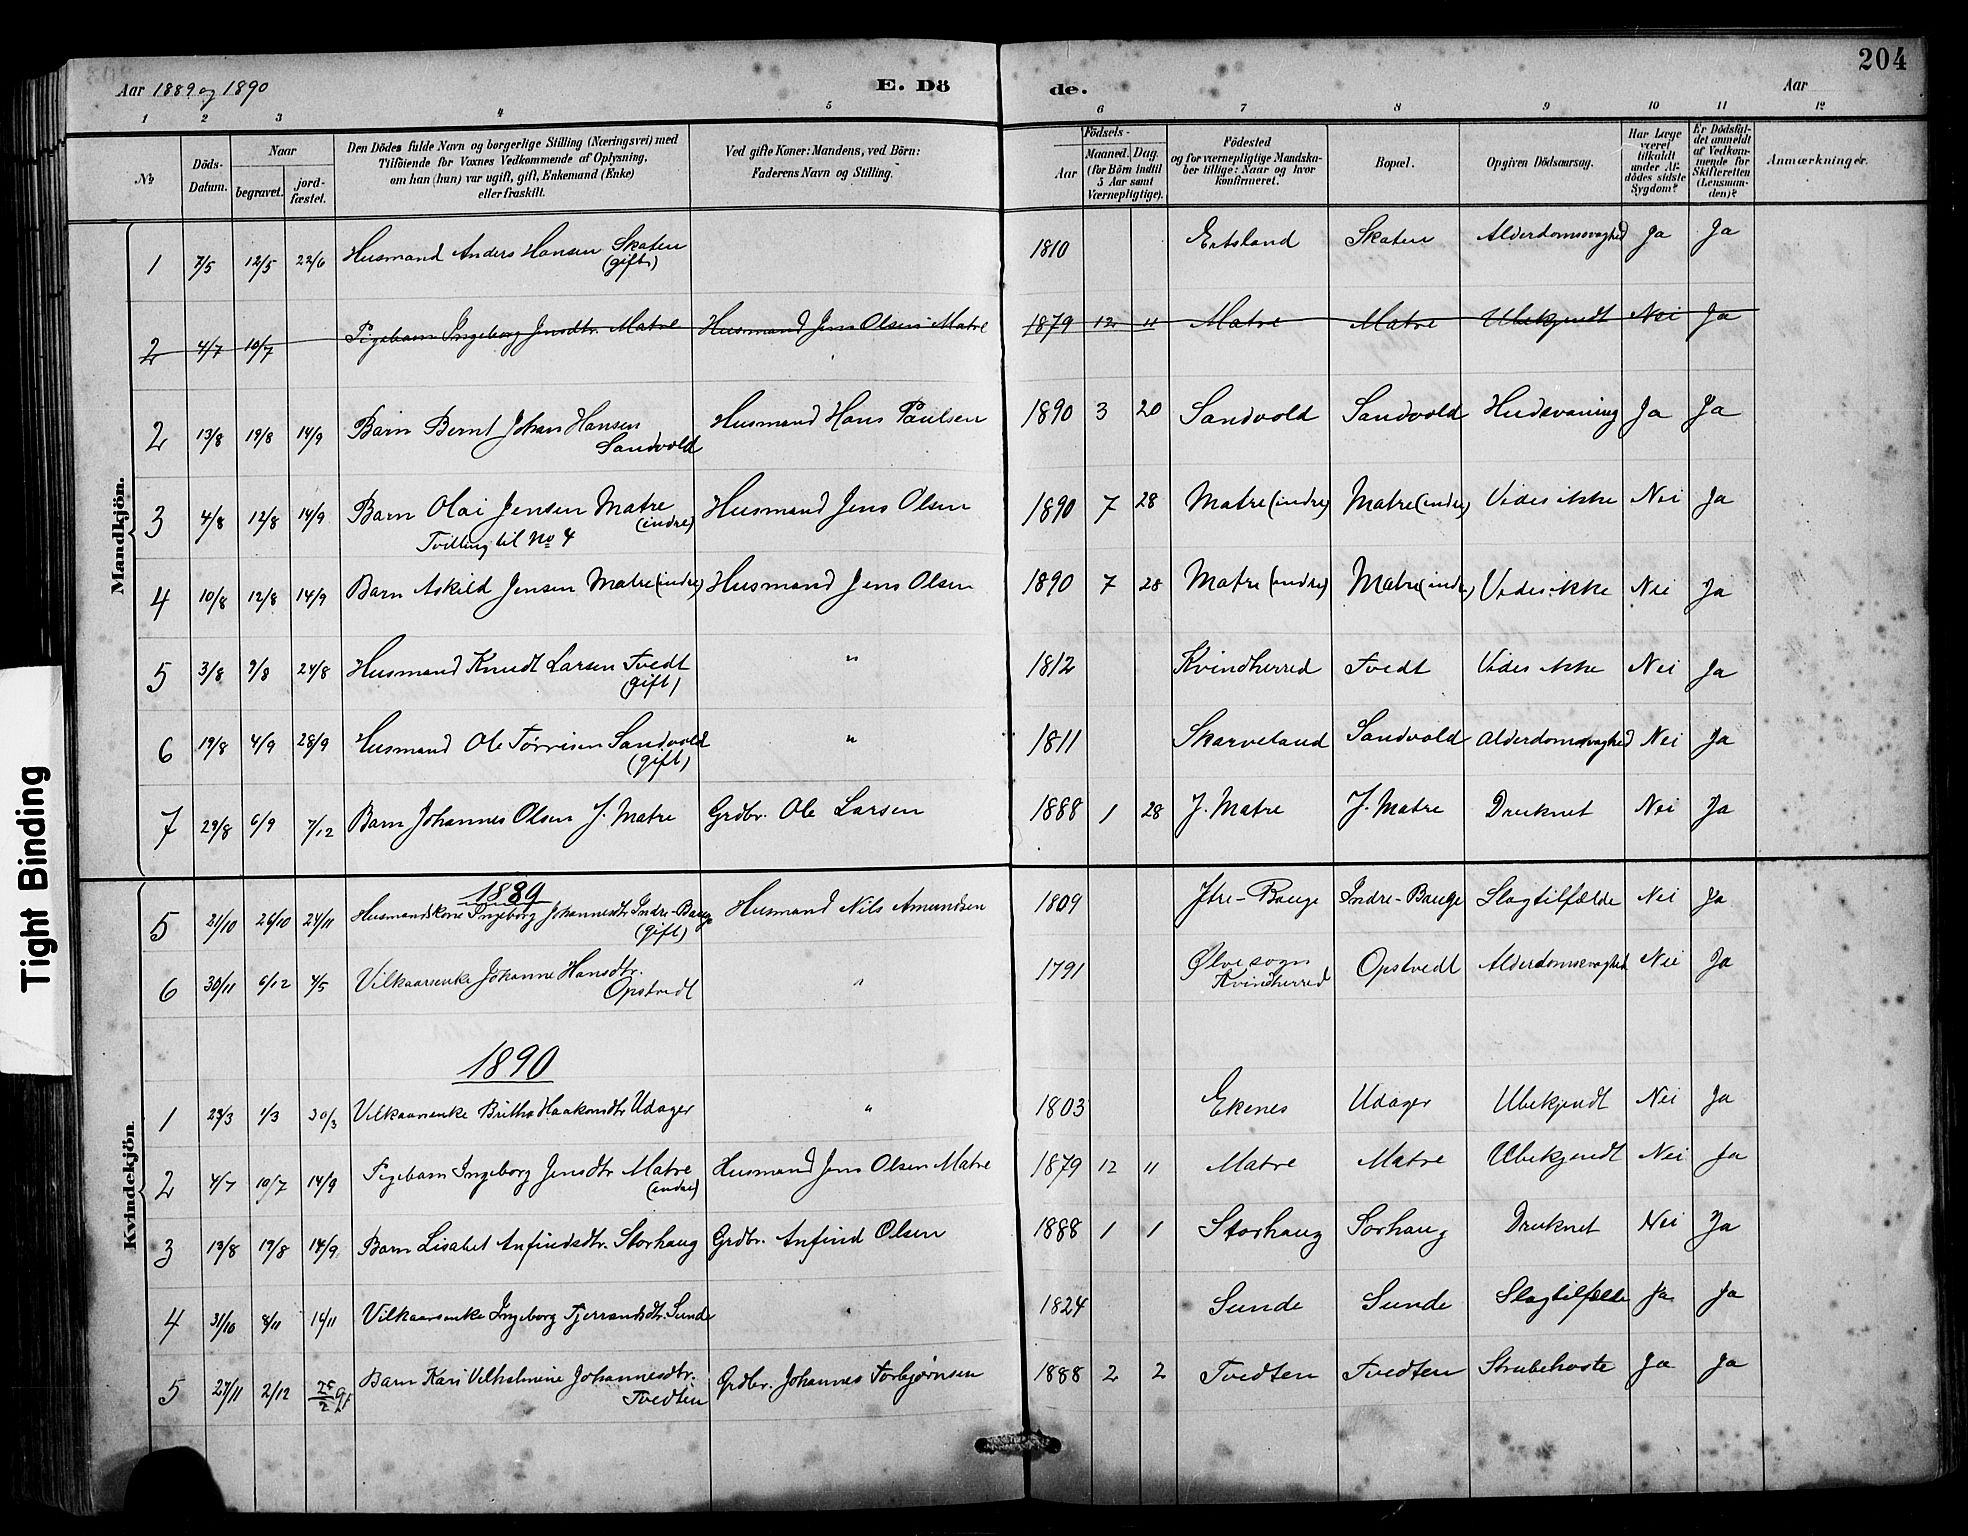 204
Aar 1889 og 1890 E. Dö de. Aar
1 2 3 4 5 6 7 8 9 10 11 12
№ Döds-Datum. Naar begravet. jord-fæstet. Den Dödes fulde Navn og borgerlige Stilling (Næringsvei) med Tilföiende for Voxnes Vedkommende af Oplysning, om han (hun) var ugift, gift, Enkemand (Enke) eller fraskilt. Ved gifte Koner: Mandens, ved Börn: Faderens Navn og Stilling. Födsels- Aar Maaned. Dag. (for Börn indtil 5 Aar samt Værnepligtige). Födested og for værnepligtige Mandska-ber tillige: Naar og hvor konfirmeret. Bopæl. Opgiven Dödsaarsag. Har Læge været tilkaldt under Af-dödes sidste Sygdom? Er Dödsfal-det anmeldt af Vedkom-mende for Skifteretten (Lensman-den)? Anmærkninger.
Mandkjön.
1 7/5 12/5 22/6 Husmand Anders Hansen Skaten (gift) 1810 Eatsland Skaten Alderdomssvaghed Ja Ja
2 4/7 10/7 Pigebarn Ingeborg Jensdtr. Matre Husmand Jens Olsen Matre 1879 12 11 Matre Matre Ubekjendt Nei Ja
2 13/8 19/8 14/9 Barn Bernt Johan Hansen Sandvold Husmand Hans Paulsen 1890 3 20 Sandvold Sandvold Ja Ja
3 4/8 12/8 14/9 Barn Olai Jensen Matre (indre) Husmand Jens Olsen 1890 7 28 Matre (indre) Matre (indre) Vides ikke Nei Ja
Tvilling til No 4
4 10/8 12/8 14/9 Barn Askild Jensen Matre (indre) Husmand Jens Olsen 1890 7 28 Matre (indre) Matre (indre) Vides ikke Nei Ja
5 3/8 9/8 24/8 Husmand Knudt Larsen Tvedt (gift) " 1812 Kvindherred Tvedt Vides ikke Nei Ja
6 19/8 4/9 28/9 Husmand Ole Tørrisen Sandvold (gift) " 1811 Skarveland Sandvold Alderdomssvaghed Nei Ja
7 29/8 6/9 7/12 Barn Johannes Olsen J. Matre Grdbr. Ole Larsen 1888 1 28 J. Matre J. Matre Druknet Nei Ja
Kvindekjön
1889
5 21/10 26/10 24/11 Husmandskone Ingeborg Johannesdtr. Indre-Bauge (gift) Husmand Nils Amundsen 1809 Ytre-Bauge Indre-Bauge Slagtilfælde Nei Ja
6 30/11 6/12 4/5 Vilkaarsenke Johanne Hansdtr. Opstvedt " 1791 Ølve sogn Kvindherred Opstvedt Alderdomssvaghed Nei Ja
1890
1 23/3 1/3 30/3 Vilkaarsenke Britha Haakonsdtr. Udager " 1803 Ekenes Udager Ubekjendt Nei Ja
2 4/7 10/7 14/9 Pigebarn Ingeborg Jensdtr. Matre (indre) Husmand Jens Olsen Matre 1879 12 11 Matre Matre Ubekjendt Nei Ja
3 13/8 19/8 14/9 Barn Lisabet Anfindsdtr. Storhaug Grdbr. Anfind Olsen 1888 1 1 Storhaug Sorhaug Druknet Nei Ja
4 31/10 8/11 16/11 Vilkaarsenke Ingeborg Tjerrandsdtr. Sunde " 1824 Sunde Sunde Slagtilfælde Ja Ja
5 27/11 2/12 25/2 91 Barn Kari Vilhelmine Johannesdtr. Tvedten Grdbr. Johannes Torbjørnsen 1888 2 2 Tvedten Tvedten Strubehoste Ja Ja
Tight Binding